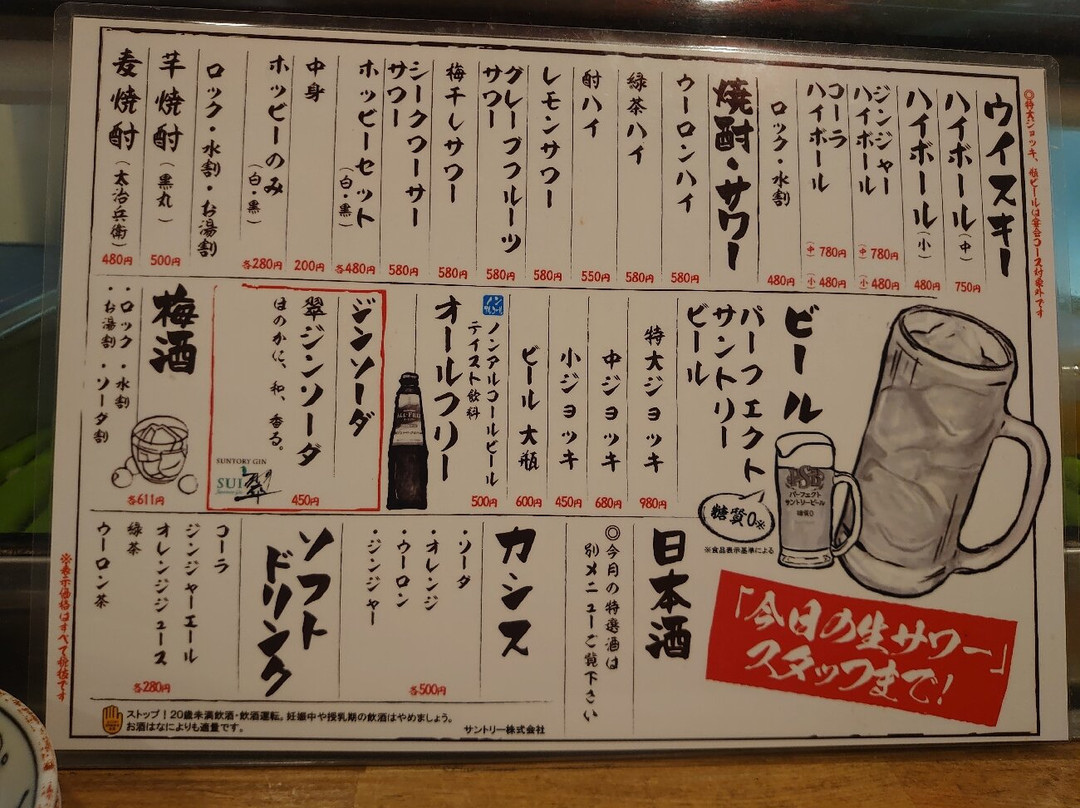 ◎特大ジョッキ、瓶ビールは宴会コース対象外です
ウイスキー
ハイボール(中) 750円
ハイボール(小) 480円
ジンジャー
ハイボール
(中) 780円
(小) 480円
コーラ
ハイボール
(中) 780円
(小) 480円
ロック・水割 480円
焼酎・サワー
ウーロンハイ 580円
緑茶ハイ 580円
酎ハイ 550円
レモンサワー 580円
グレープフルーツ
サワー 580円
梅干しサワー 580円
シークワーサー
サワー 580円
ホッピーセット(白・黒) 各480円
中身 200円
ホッピーのみ(白・黒) 各280円
ロック・水割・お湯割
芋焼酎(黒丸) 500円
麦焼酎(太治兵衛) 480円
ビール
パーフェクト
サントリー
ビール
特大ジョッキ 980円
中ジョッキ 680円
小ジョッキ 450円
ビール大瓶 600円
ノンアルコールビール
テイスト飲料
オールフリー 500円
ALL-FREE
ジンソーダ
翠ジンソーダ 450円
ほのかに、和、香る。
SUNTORY GIN
SUI
翠
梅酒
・ロック ・水割
・お湯割 ・ソーダ割
各611円
PSB
パーフェクト
サントリービール
糖質0
糖質0※
※食品表示基準による
「今日の生サワー」
スタッフまで!
日本酒
◎今月の特選酒は
別メニューご覧下さい
カシス
・ソーダ
・オレンジ
・ウーロン
・ジンジャー
各500円
ソフト
ドリンク
コーラ
ジンジャーエール
オレンジジュース
緑茶
ウーロン茶
各280円
※表示価格はすべて税抜です
ストップ!20歳未満飲酒・飲酒運転。妊娠中や授乳期の飲酒はやめましょう。
お酒はなによりも適量です。
サントリー株式会社